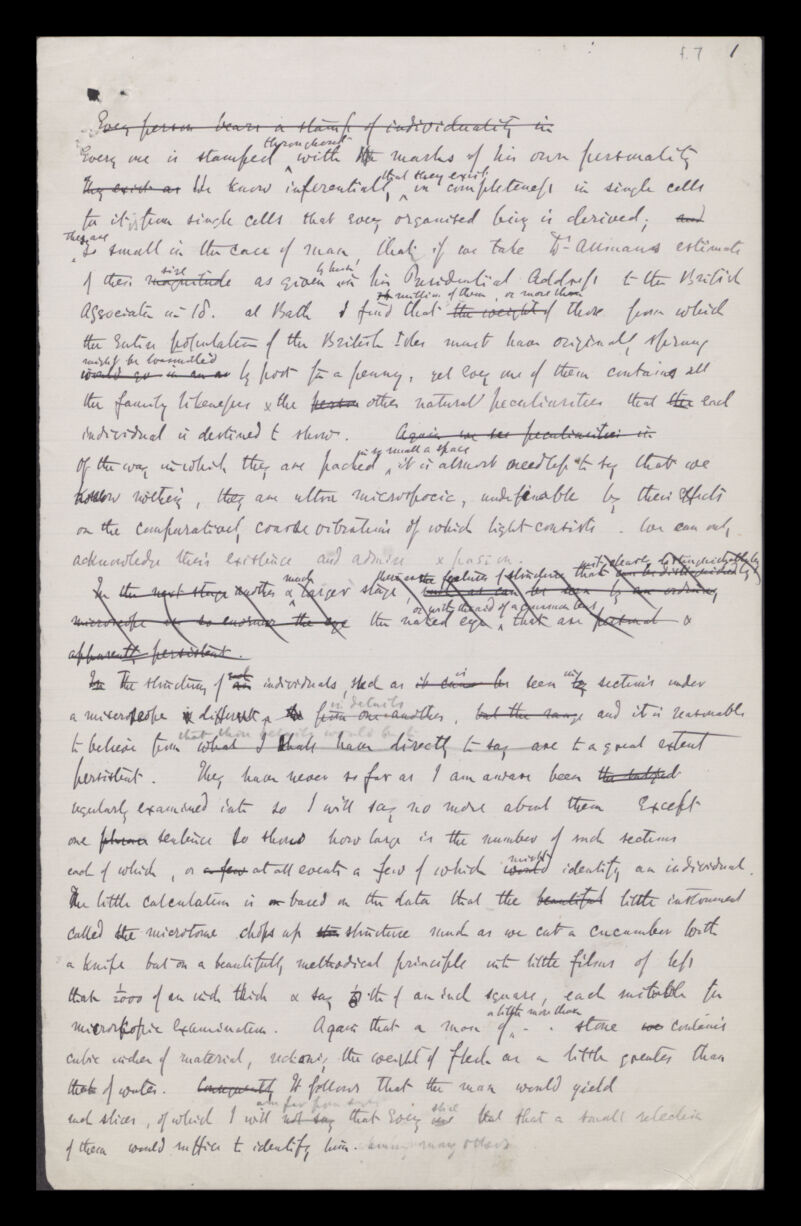 f.7 1
Every person bears a stamp of individuality in
throughout
Every one is stamped with the marks of his own personality
that they exist
They exist as We know inferentially in completeness in single cells
for it is from single cells that every organised being is derived; and
they are
so small in the case of man that if we take Dr. Allman's estimate
size by him
of their magnitude as given in his Presidential Address to the British
millions of them, or more than
Association in 18. at Bath I find that the weight of those from which
the entire population of the British Isles must have originally sprung
might be transmitted
would go in an by post for a penny, yet every one of them contains all
the family likenesses & the person other natural peculiarities that the each
individual is destined to show. Again we see peculiarities in
in so small a space
Of the way in which they are packed, it is almost needless to say that we
know nothing, they are ultra microscopic, undefinable by their effects
on the comparatively coarse vibrations of which light consists. We can only
acknowledge their existence and admire & pass on.
much there are clearly distinguishable by
In the next stage another a larger stage, the features of structure that can be distinguished by
such as can be seen by an ordinary
or with the aid of a common lens
microscope or so enormous the eye the naked eye, that are personal &
apparently persistent.
such
In The structure of an individuals, such as it can be seen by sections under
in details
a microscope is different from one another, but the range and it is reasonable
that these details would be
to believe from what I shall have directly to say are to a great extent
persistent. They have never so far as I am aware been the subject
regularly examined into so I will say no more about them Except
one phrase sentence to show how large is the number of such sections
might
each of which, or a few at all events a few of which would identify an individual.
The little calculation is on based on the data that the beautiful little instrument
called the microtome chops up the structure much as we cut a cucumber with
a knife but on a beautifully methodical principle into little films of less
than 1/2000 of an inch thick & say th of an inch square, each suitable for
a little more than
microscopic examination. Again that a man of - - stone we contains
cubic inches of material, reckoning the weight of flesh as a little greater than
that of water. Consequently It follows that the man would yield
am far from saying slice
such slices, of which I will not say that every one but that a small selection
of them would suffice to identify him. among many others